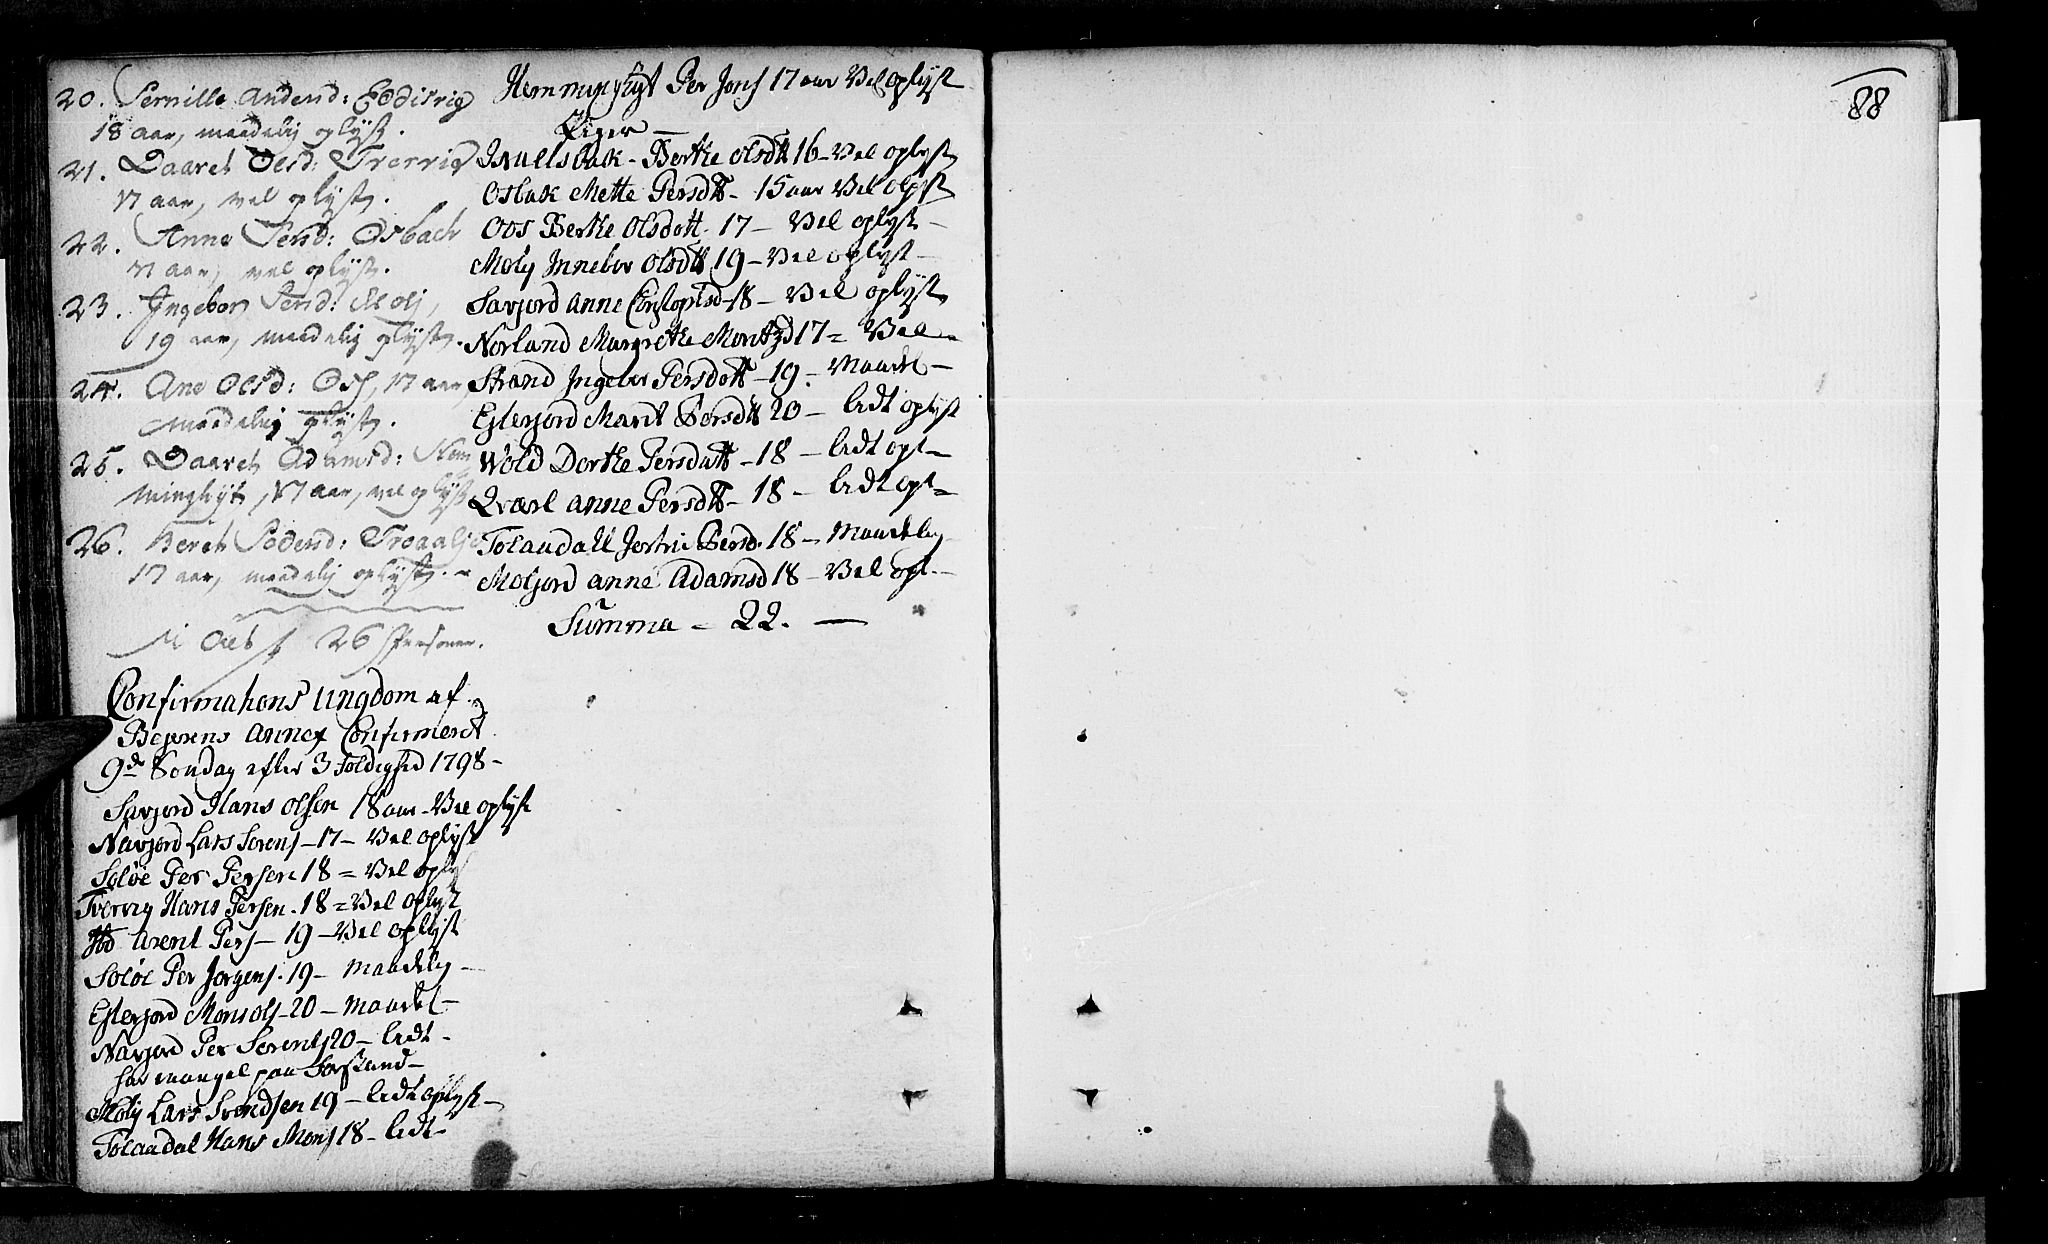 20. Pernille Andersd:
18 aar, maadelig oplyst.
21. Daaret Olsd: Tverviig
17 aar, vel oplyst.
22. Anne Persd: Osbach
17 aar, vel oplyst.
23. Ingebor Persd: Molj,
19 aar, maadelig oplyst.
24. Ane Olsd: Os, 17 aar,
maadelig oplyst.
25. Daaret Adamsd: Hem
minghyt, 17 aar, vel oplyst
26. Beret Pedersd:
17 aar, maadelig oplyst.
26 Personer.
Confirmations Ungdom af
Bejerens Annex Confirmeret
9de Søndag efter 3foldighed 1798 –
Savjord Hans Olssen 18 aar – Vel oplyst
Navjord Lars Sørens – 17 – Vel oplyst
Soløe Per Persen 18 = Vel oplyst
Tvervig Hans Persen. 18 = Vel oplyst
Arent Pers – 19 – Vel oplyst
Soløe Per Jørgens. 19 – Maadelig –
Esterjord Mons Ols – 20 – Maadel –
Navjord Per Sørens 20 – lidt –
har mangel paa Forstand –
Molij Lars Svendsen 19 – lidt oplyst –
Tolaadal Hans Mons 18 – lidt –
Hemminghyt Per Jons 17 aar Vel oplyst
Piger –
Berthe Olsdtt 16 – Vel oplyst
Osbak Mette Persdtt – 15 aar Vel oplyst
Oos Berthe Olsdott. 17 – Vel oplyst –
Molij Inneber Olsdtt 19 – Vel oplyst –
Savjord Anne 18 – Vel oplyst
Norland Margrethe Moritzd 17 = Vel –
Strand Ingeber Persdott – 19. – Maadel –
Esterjord Marit Persdtt 20 – lidt oplyst
Wold Dorthe Persdatt – 18 – lidt opl –
Qværl Anne Persdtt – 18 – lidt opl –
Tolaadall Persd. 18 – Maadelig
Moljord Anne Adamsd 18 – Vel opl. –
Summa – 22. –
88